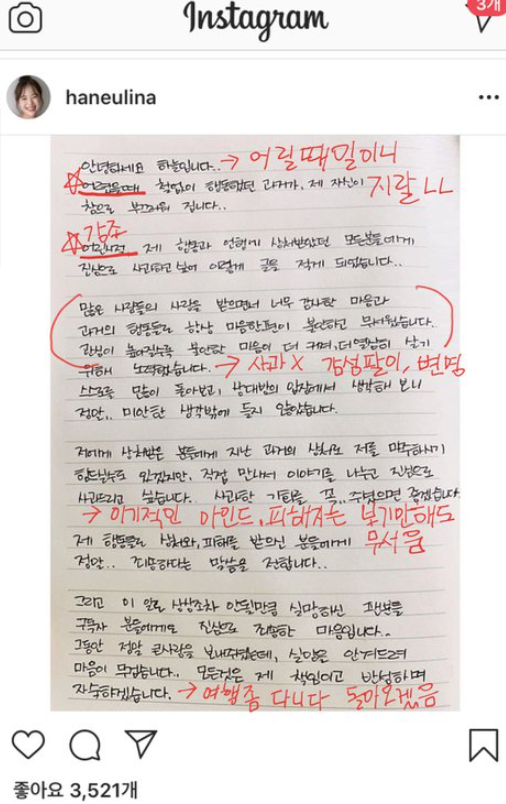 3개
Instagram
haneulina
안녕하세요 하늘입니다.. → 어릴때일이니
☆어렸을때 철없이 행동했던 과거가, 제 자신이 지랄ㄴㄴ
참으로 부끄러워 집니다..
강조
☆어린시절 제 행동과 언행에 상처받았던 모든분들에게
진심으로 사과하고싶어 이렇게 글을 적게 되었습니다..
많은 사람들의 사랑을 받으면서 너무 감사한 마음과
과거의 행동들로 항상 마음한편이 불안하고 무서웠습니다.
관심이 높아질수록 불안한 마음이 더 커며, 더 열심히 살기
위해 노력했습니다. → 사과X 감성팔이, 변명
스스로를 많이 돌아보고, 상대방의 입장에서 생각해 보니
정말.. 미안한 생각밖에 들지 않았습니다.
저에게 상처받은 분들에게 지난 과거의 상처로 저를 마주하시기
힘드실수도 있겠지만, 직접 만나서 이야기를 나누고 진심으로
사과드리고 싶습니다.. 사과할 기회를 꼭.. 주셨으면 좋겠습니다
→ 이기적인 마인드, 피해자는 보기만해도
제 행동들로 상처와, 피해를 받으신 분들에게 무서움
정말.. 죄송하다는 말씀을 전합니다..
그리고 이 일로 상상조차 안될만큼 실망하신 팬분들
구독자 분들에게도 진심으로 죄송한 마음입니다..
그동안 정말 큰사랑을 보내주셨는데, 실망을 안겨드려
마음이 무겁습니다.. 모든것은 제 책임이고 반성하며
자숙하겠습니다. → 여행좀 다니다 돌아오겠음
좋아요 3,521개